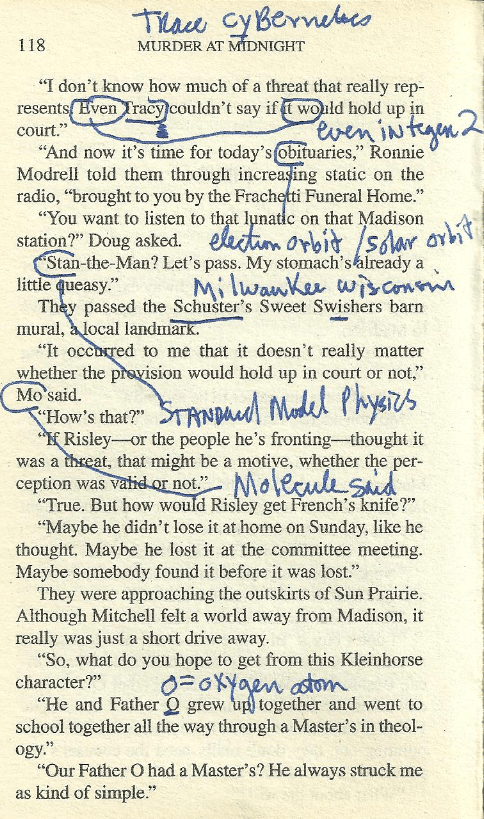 Trace cyBernetics
118 MURDER AT MIDNIGHT
“I don’t know how much of a threat that really rep-
resents. Even Tracy couldn’t say if it would hold up in
court.”
even integer 2
“And now it’s time for today’s obituaries,” Ronnie
Modrell told them through increasing static on the
radio, “brought to you by the Frachetti Funeral Home.”
“You want to listen to that lunatic on that Madison
station?” Doug asked.
election orbit / solar orbit
“Stan-the-Man? Let’s pass. My stomach’s already a
little queasy.”
Milwaukee wisconsin
They passed the Schuster’s Sweet Swishers barn
mural, a local landmark.
“It occurred to me that it doesn’t really matter
whether the provision would hold up in court or not,”
Mo said.
“How’s that?”
STANDARD Model Physics
“If Risley—or the people he’s fronting—thought it
was a threat, that might be a motive, whether the per-
ception was valid or not.”
Molecule said
“True. But how would Risley get French’s knife?”
“Maybe he didn’t lose it at home on Sunday, like he
thought. Maybe he lost it at the committee meeting.
Maybe somebody found it before it was lost.”
They were approaching the outskirts of Sun Prairie.
Although Mitchell felt a world away from Madison, it
really was just a short drive away.
“So, what do you hope to get from this Kleinhorse
character?”
O = oxygen atom
“He and Father O grew up together and went to
school together all the way through a Master’s in theol-
ogy.”
“Our Father O had a Master’s? He always struck me
as kind of simple.”